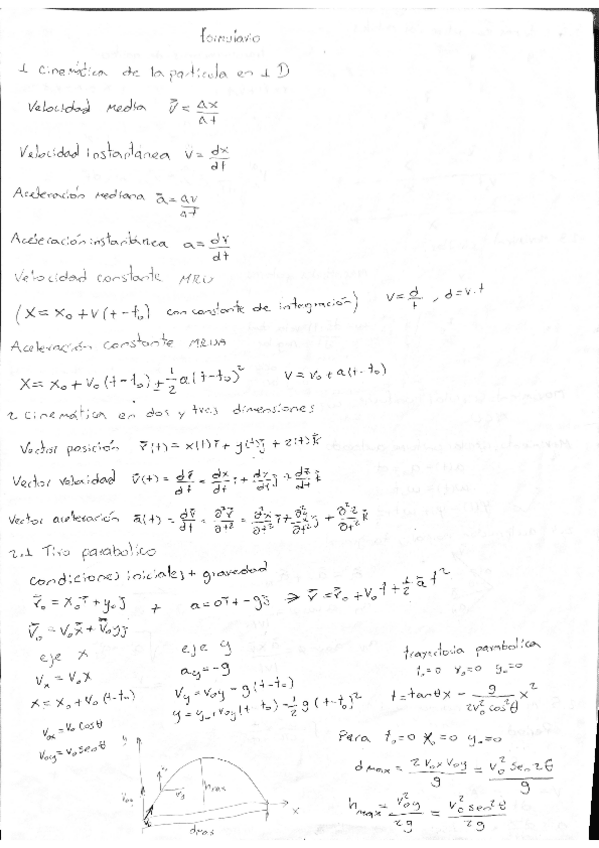 formulario
1 Cinemática de la partícula en 1 D
Velocidad Media v̄ = Δx/Δt
Velocidad instantánea v = dx/dt
Aceleración Mediana ā = Δv/Δt
Aceleración instantánea a = dv/dt
Velocidad constante MRU
(x = x₀ + v(t - t₀) con constante de integración) v = d/t , d = v·t
Aceleración constante MRUA
x = x₀ + v₀(t - t₀) ± 1/2 a(t - t₀)² v = v₀ + a(t - t₀)
2 Cinemática en dos y tres dimensiones
Vector posición r̄(t) = x(t)ī + y(t)j̄ + z(t)k̄
Vector velocidad v̄(t) = dr̄/dt = dx/dt ī + dy/dt j̄ + dz/dt k̄
Vector aceleración ā(t) = dv̄/dt = ∂²r̄/∂t² = ∂²x/∂t² ī + ∂²y/∂t² j̄ + ∂²z/∂t² k̄
2.1 Tiro parabolico
condiciones iniciales + gravedad
r̄₀ = x₀ī + y₀j̄ + a = 0ī - gj̄ ⇒ r̄ = r̄₀ + v₀t + 1/2 āt²
v̄₀ = v₀x̄ + v̄₀yj̄
eje x
vₓ = v₀x
x = x₀ + v₀(t - t₀)
v₀x = v₀ cosθ
v₀y = v₀ senθ
eje y
ay = -g
Vy = v₀y - g(t - t₀)
y = y₀ + v₀y(t - t₀) - 1/2 g(t - t₀)²
trayectoria parabolica
t₀=0 x₀=0 y₀=0
t = tanθx - g/2v₀²cos²θ x²
Para t₀=0 x₀=0 y₀=0
dmax = 2v₀x v₀y/g = v₀² sen2θ/g
hmax = v₀y²/2g = v₀² sen²θ/2g
y
hmax
x
dmax